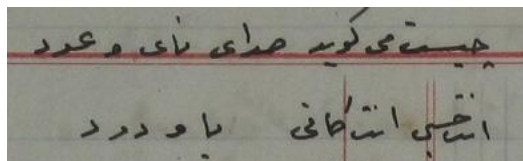 چیست می گوید صدای نای و عود
انت حسبی انت کافی یا ودود